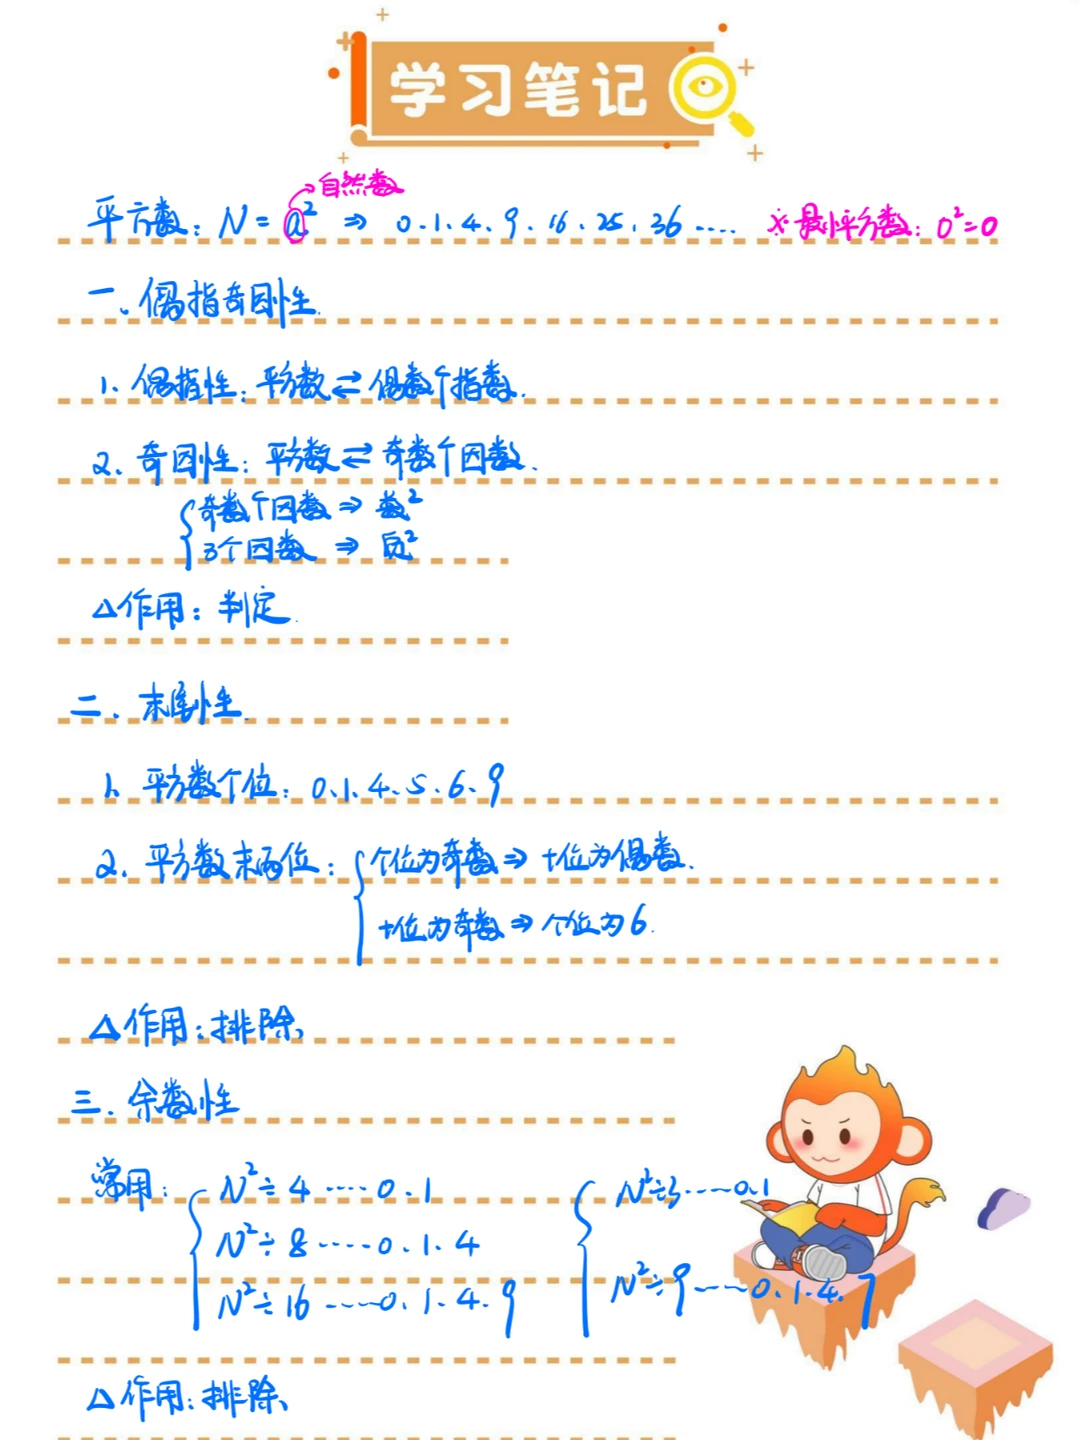 学习笔记
自然数
平方数：N = a² ⇒ 0、1、4、9、16、25、36 …… ※最小平方数：0²=0
一、偶指奇因性.
1、偶指性：平方数⇄偶数个指数.
2、奇因性：平方数⇄奇数个因数.
奇数个因数 ⇒ 数²
3个因数 ⇒ 质²
△作用：判定.
二、末尾性.
1、平方数个位：0、1、4、5、6、9
2、平方数末两位：个位为奇数 ⇒ 十位为偶数.
十位为奇数 ⇒ 个位为6.
△作用：排除、
三、余数性
常用：N²÷4 ……0、1 N²÷3……0、1
N²÷8 ……0、1、4
N²÷16 ……0、1、4、9 N²÷9……0、1、4、7
△作用：排除、